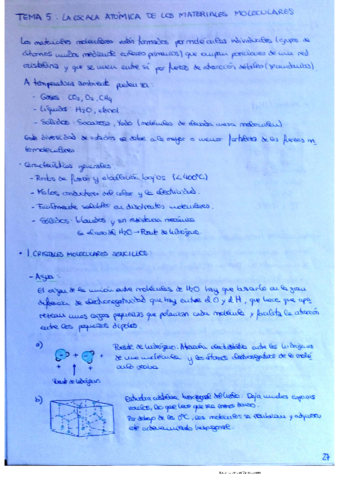 TEMA 5: LA ESCALA ATÓMICA DE LOS MATERIALES MOLECULARES
Los materiales moleculares están formados por moléculas individuales (grupos de
átomos unidos mediante enlaces primarios) que ocupan posiciones de una red
cristalina y que se unen entre sí por fuerzas de atracción débiles (secundarios)
A temperatura ambiente pueden ser:
- Gases: CO2, O2, CH4
- Líquidos: H2O, etanol
- Sólidos: Sacarosa, Yodo (moléculas de elevada masa molecular)
Esta diversidad de estados se debe a la mayor o menor fortaleza de las fuerzas in
termoleculares
- Características generales:
- Puntos de fusión y ebullición bajos (<400°C)
- Malos conductores del calor y la electricidad.
- Fácilmente solubles en disolventes moleculares.
- Sólidos: blandos y sin resistencia mecánica
H2O → Puente de hidrógeno
1. CRISTALES MOLECULARES SENCILLOS
- Agua:
El origen de la unión entre moléculas de H2O hay que buscarlo en la gran
diferencia de electronegatividad que hay entre el O y el H, que hace que apa
rezcan unas cargas pequeñas que polarizan cada molécula y facilita la atracción
entre los pequeños dipolos
a)
Puente de hidrógeno: Atracción electrostática entre los hidrógenos
de una molécula y los átomos electronegativos de la molé
cula vecina
Puente de hidrógeno
b)
Estructura cristalina hexagonal del hielo. Deja muchos espacios
vacíos, lo que hace que sea menos denso.
Por debajo de los 0°C, las moléculas se reordenan y adquieren
hexagonal.
27